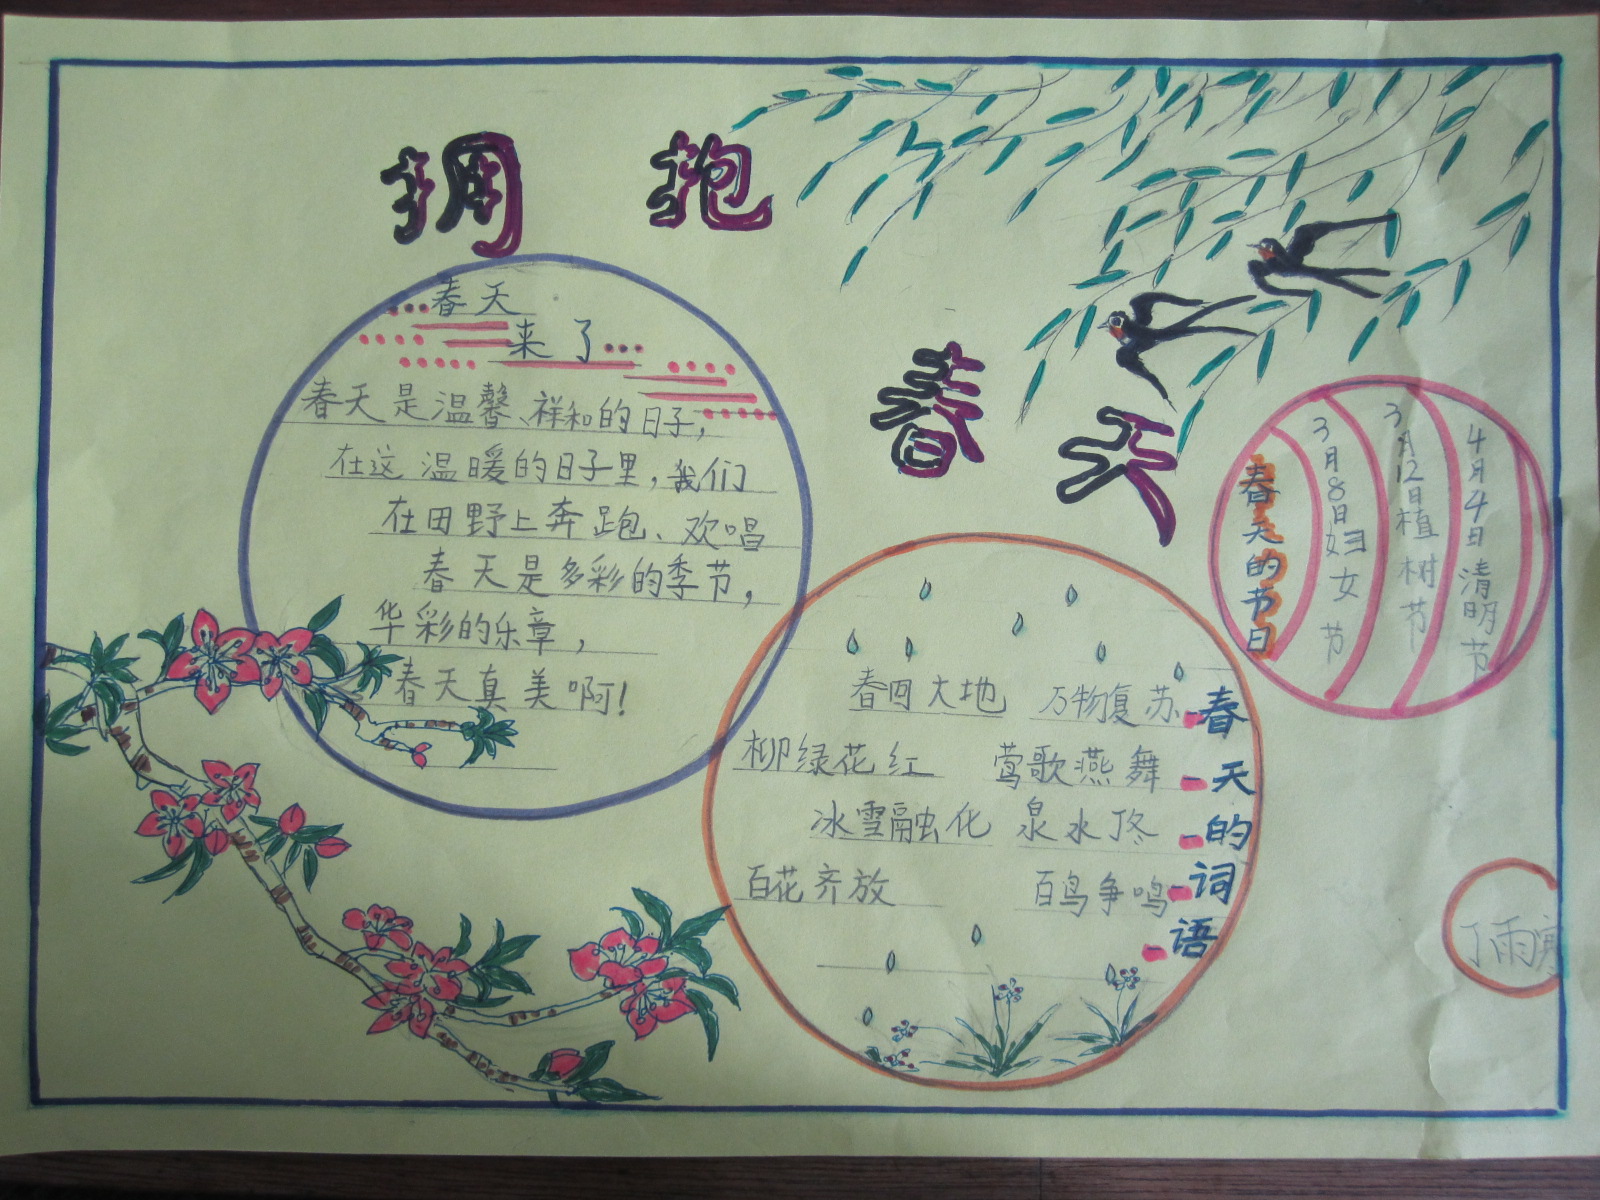 拥抱
春天
春天
来了
春天是温馨、祥和的日子，
在这温暖的日子里，我们
在田野上奔跑、欢唱
春天是多彩的季节，
华彩的乐章，
春天真美啊！
春天的节日
3月8日妇女节
3月12日植树节
4月4日清明节
春天的词语
春回大地 万物复苏
柳绿花红 莺歌燕舞
冰雪融化 泉水丁冬
百花齐放 百鸟争鸣
丁雨